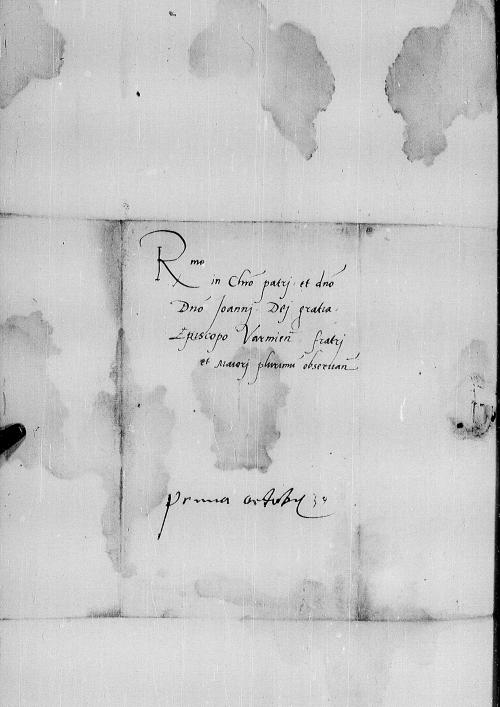 Rmo
in Chrō patrj et dnō
Dnō Joannj Dej gratia
Episcopo Varmien̄ fratrj
et Maiorj plurimū observan̄
prima octobr 34